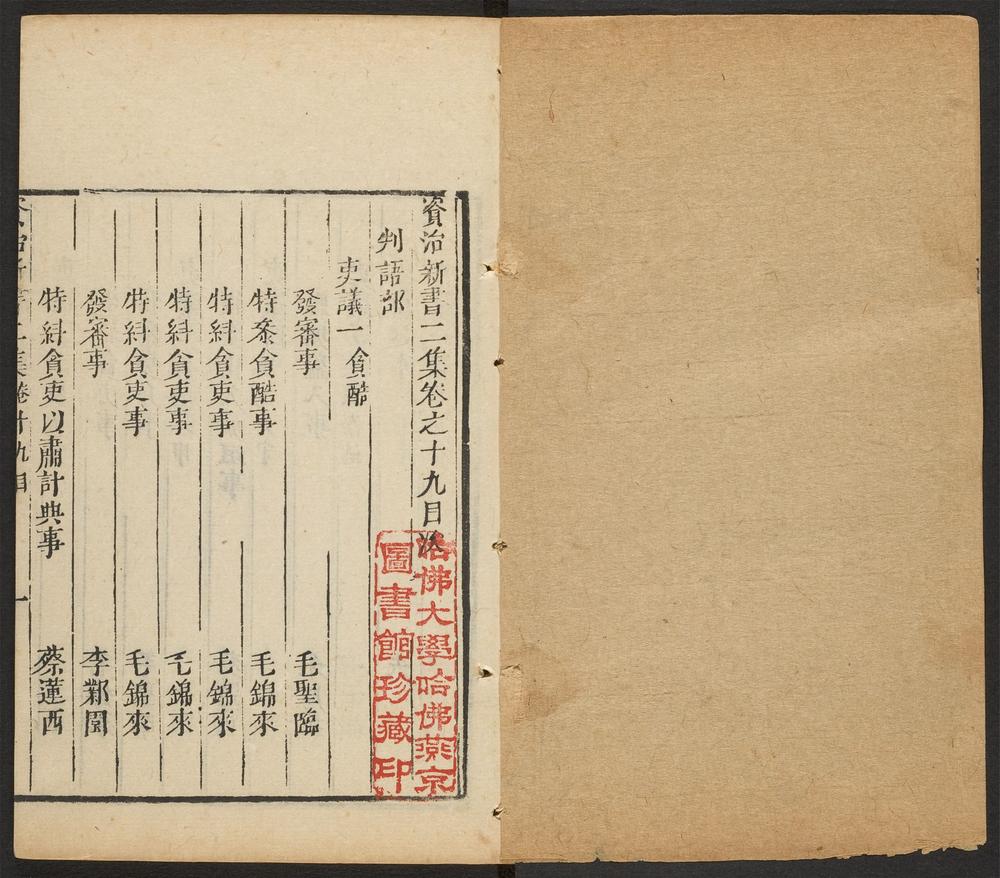 資治新書二集卷之十九目次
判語部
吏議一貪酷
發審事 毛聖臨
特叅貪酷事 毛錦來
特糾貪吏事 毛錦來
特糾貪吏事 毛錦來
特糾貪吏事 毛錦來
發審事 李鄴園
特糾貪吏以肅計典事 蔡蓮西
資治新書二集卷十九目 一
哈佛大學哈佛燕京
圖書館珍藏印